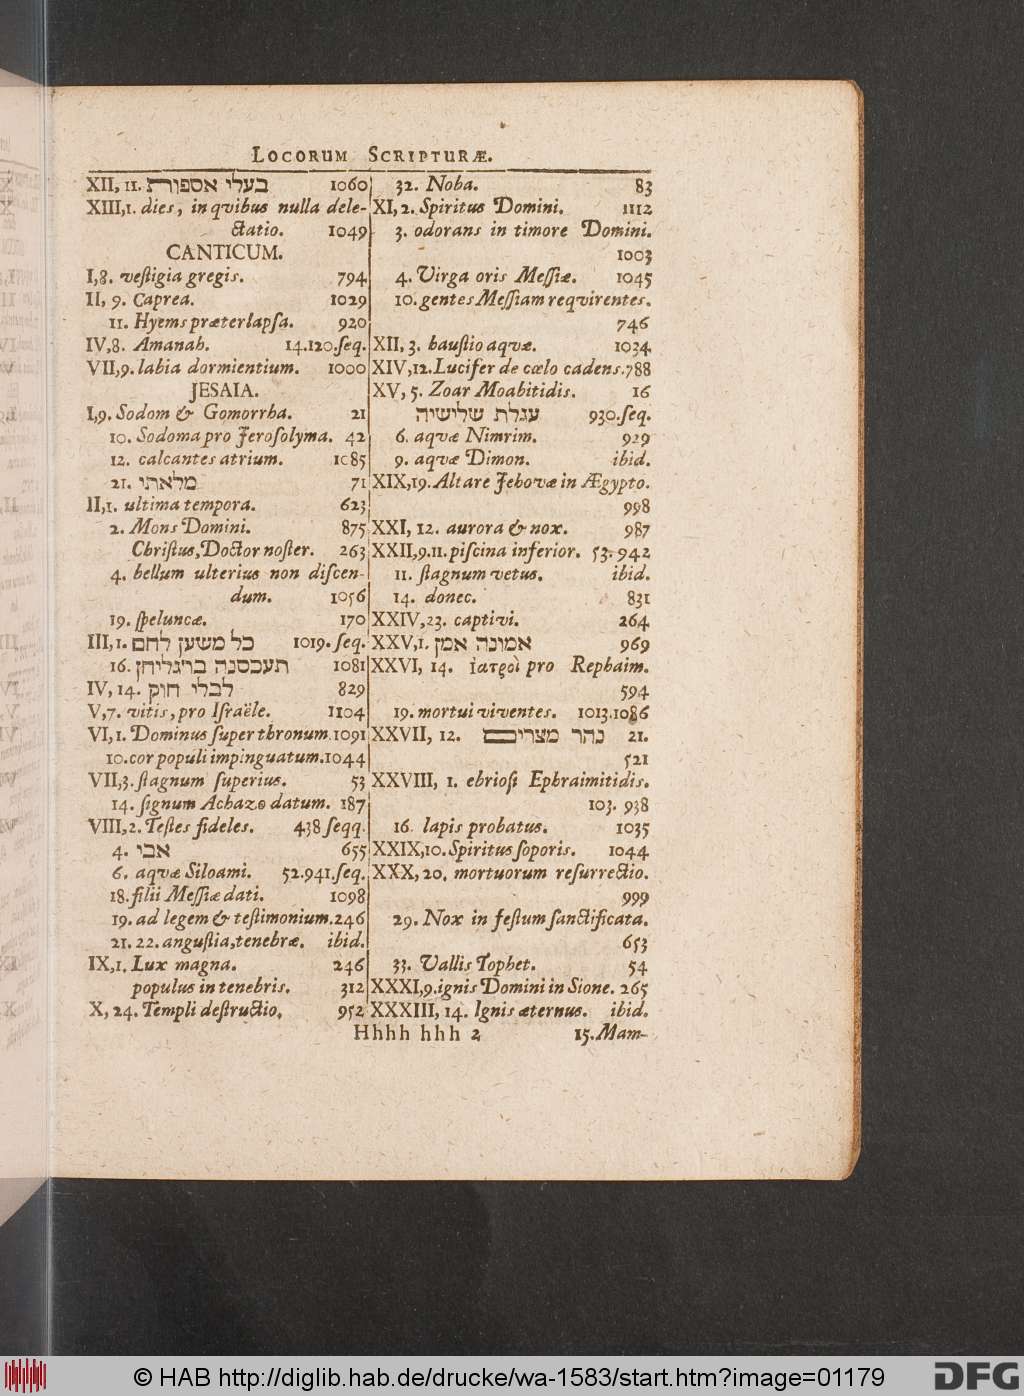 LOCORUM SCRIPTURÆ.
XII, 11. בעלי אספורת 1060
XIII,1. dies, in qvibus nulla dele-
ctatio. 1049
CANTICUM.
I,8. vestigia gregis. 794
II, 9. Caprea. 1029
11. Hyems præterlapsa. 920
IV,8. Amanah. 14.120.seq.
VII,9. labia dormientium. 1000
JESAIA.
I,9. Sodom & Gomorrha. 21
10. Sodoma pro Jerosolyma. 42
12. calcantes atrium. 1085
21. מלאתי 71
II,1. ultima tempora. 623
2. Mons Domini. 875
Christus, Doctor noster. 263
4. bellum ulterius non discen-
dum. 1056
19. speluncæ. 170
III,1. כל משען לחם 1019. seq.
16. תעכסנה ברגליהן 1081
IV, 14. לבלי חוק 829
V,7. vitis, pro Israële. 1104
VI,1. Dominus super thronum. 1091
10. cor populi impinguatum. 1044
VII,3. stagnum superius. 53
14. signum Achazo datum. 187
VIII,2. Testes fideles. 438 seqq.
4. אבי 655
6. aqvæ Siloami. 52.941.seq.
18. filii Messiæ dati. 1098
19. ad legem & testimonium. 246
21. 22. angustia, tenebræ. ibid.
IX,1. Lux magna. 246
populus in tenebris. 312
X, 24. Templi destructio. 952
32. Noba. 83
XI,2. Spiritus Domini. 1112
3. odorans in timore Domini.
1003
4. Virga oris Messiæ. 1045
10. gentes Messiam reqvirentes.
746
XII, 3. haustio aqvæ. 1034
XIV,12. Lucifer de cœlo cadens. 788
XV, 5. Zoar Moabitidis. 16
עגלת שלישיה 930. seq.
6. aqvæ Nimrim. 929
9. aqvæ Dimon. ibid.
XIX,19. Altare Jehovæ in Ægypto.
998
XXI, 12. aurora & nox. 987
XXII,9.11. piscina inferior. 53. 942
11. stagnum vetus. ibid.
14. donec. 831
XXIV,23. captivi. 264
XXV,1. אמונה אמן 969
XXVI, 14. ἰατροὶ pro Rephaim.
594
19. mortui viventes. 1013.1086
XXVII, 12. נהר מצרים 21.
521
XXVIII, 1. ebriosi Ephraimitidis.
103. 938
16. lapis probatus. 1035
XXIX,10. Spiritus soporis. 1044
XXX, 20. mortuorum resurrectio.
999
29. Nox in festum sanctificata.
653
33. Vallis Tophet. 54
XXXI,9. ignis Domini in Sione. 265
XXXIII, 14. Ignis æternus. ibid.
Hhhh hhh 2 15. Mam-
© HAB http://diglib.hab.de/drucke/wa-1583/start.htm?image=01179
DFG